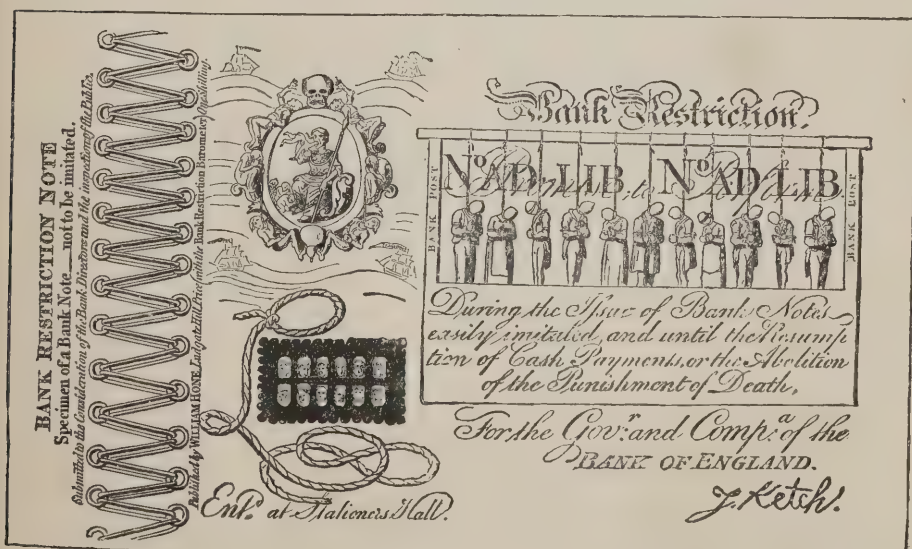 BANK RESTRICTION NOTE
Specimen of a Bank Note — not to be imitated.
Submitted to the Consideration of the Bank Directors and the inspection of the Public.
Published by WILLIAM HONE, Ludgate Hill, Price Bank Restriction Barometer) One Shilling.
Bank Restriction.
BANK POST
No. AD LIB. No. AD LIB.
to Perform
BANK POST
During the Issue of Bank Notes
easily imitated, and until the Resump
tion of Cash Payments, or the Abolition
of the Punishment of Death,
For the Govr. and Compa. of the
BANK OF ENGLAND.
J. Ketch.
Entd. at Stationers Hall.